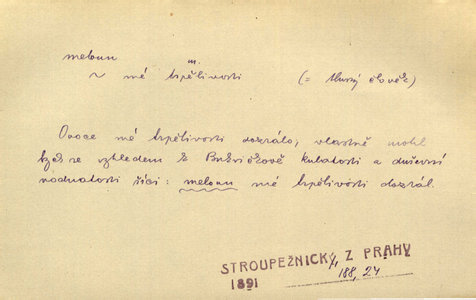 meloun
~ mé trpělivosti m. (= tlustý člověk)
Ovoce mé trpělivosti dozrálo; vlastně mohl
bych se vzhledem k Bukvičkově kulatosti a duševní
vodnatosti říci: meloun mé trpělivosti dozrál.
STROUPEŽNICKÝ, Z PRAHY
1891 188, 24